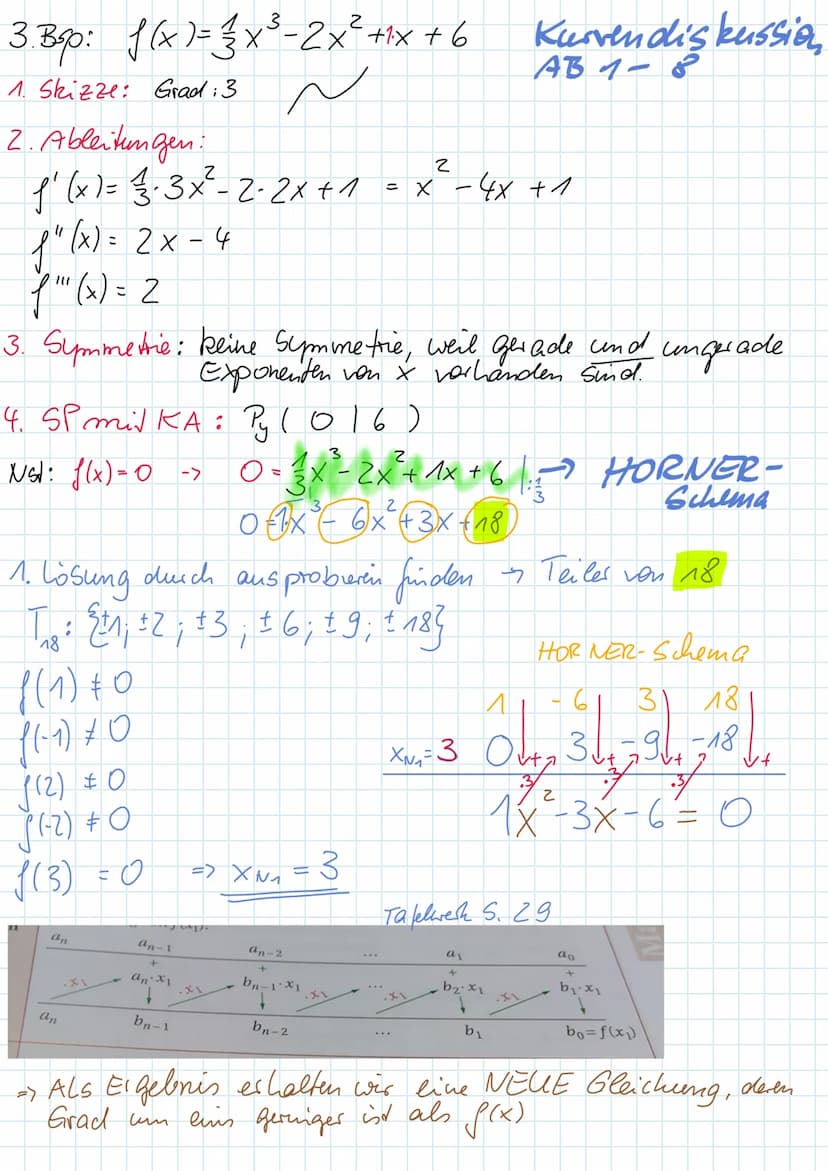 3. Bsp: f(x)= 1/3 x³ - 2x² + 1·x + 6
Kurvendiskussion
AB 1 - 8
1. Skizze: Grad: 3
2. Ableitungen:
f'(x)= 1/3 · 3x² - 2·2x + 1 = x² - 4x + 1
f''(x) = 2x - 4
f'''(x) = 2
3. Symmetrie: keine Symmetrie, weil gerade und ungerade
Exponenten von x vorhanden sind.
4. SP mit KA: Py ( 0 | 6 )
Nst: f(x)=0 -> 0 = 1/3 x³ - 2x² + 1x + 6 |: 1/3 → HORNER-
Schema
0 = 1·x³ - 6x² + 3x + 18
1. Lösung durch ausprobieren finden → Teiler von 18
T₁₈: {±1; ±2; ±3; ±6; ±9; ±18}
HORNER-Schema
f(1) ≠ 0
f(-1) ≠ 0
f(2) ≠ 0
f(-2) ≠ 0
f(3) = 0 => xN₁ = 3
1 -6 3 18
xN₁= 3 0 + 3 + -9 + -18 +
·3 ·3 ·3
1x² - 3x - 6 = 0
Tafelwerk S. 29
aₙ aₙ₋₁ aₙ₋₂ ... a₁ a₀
+ + + +
·x₁ aₙ·x₁ ·x₁ bₙ₋₁·x₁ ·x₁ ... ·x₁ b₂·x₁ ·x₁ b₁·x₁
aₙ bₙ₋₁ bₙ₋₂ ... b₁ b₀=f(x₁)
=> Als Ergebnis erhalten wir eine NEUE Gleichung, deren
Grad um eins geringer ist als f(x)